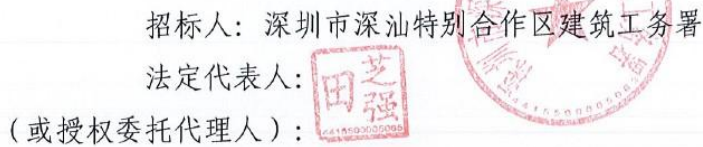 招标人：深圳市深汕特别合作区建筑工务署
法定代表人：
田芝强
（或授权委托代理人）：